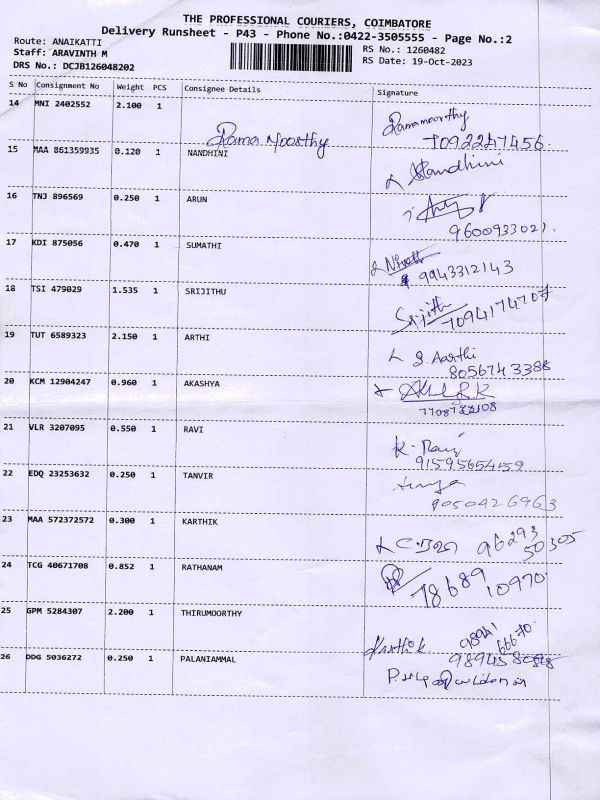 THE PROFESSIONAL COURIERS, COIMBATORE
Delivery Runsheet - P43 - Phone No.:0422-3505555 - Page No.:2
Route: ANAIKATTI
Staff: ARAVINTH M
RS No.: 1260482
DRS No.: DCJB126048202
RS Date: 19-Oct-2023
S No Consignment No Weight PCS Consignee Details Signature
14 MNI 2402552 2.100 1 Rama Moorthy Ramamoorthy
7092247456
15 MAA 861359935 0.120 1 NANDHINI Nandhini
16 TNJ 896569 0.250 1 ARUN
9600933021
17 KDI 875056 0.470 1 SUMATHI
9943312143
18 TSI 479029 1.535 1 SRIJITHU Srijith
7094174707
19 TUT 6589323 2.150 1 ARTHI S. Aarthi
8056743386
20 KCM 12904247 0.960 1 AKASHYA
21 VLR 3207095 0.550 1 RAVI K. Ravi
22 EDQ 23253632 0.250 1 TANVIR
9050426963
23 MAA 572372572 0.300 1 KARTHIK
96293
50305
24 TCG 40671708 0.852 1 RATHANAM
78689
10970
25 GPM 5284307 2.200 1 THIRUMOORTHY
Karthik
98941
66670
26 DDG 5036272 0.250 1 PALANIAMMAL